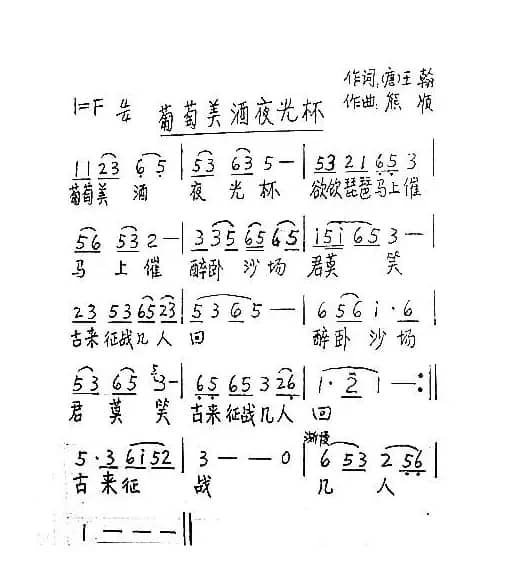 作词:(唐)王翰
1=F 4/4 葡萄美酒夜光杯 作曲:熊
1 1 2 3 6 5 | 5 3 6 3 5 — | 5 3 2 1 6 5 3 |
葡萄美 酒 夜 光 杯 欲饮琵琶马上催
5 6 5 3 2 — | 3 3 5 6 5 6 5 | i 5 i 6 5 3 — |
马 上 催 醉卧 沙 场 君莫 笑
2 3 5 3 6 5 2 3 | 5 3 6 5 — | 6 5 6 i · 6 |
古来征战几人 回 醉卧 沙 场
5 3 6 5 3 — | 6 5 6 5 3 2 6 | 1 · 2 1 — :||
君 莫 笑 古来征战几人 回
渐慢
5 · 3 6 i 5 2 | 3 — — 0 | 6 5 3 2 5 6 |
古 来 征 战 几 人
1 — — — ||